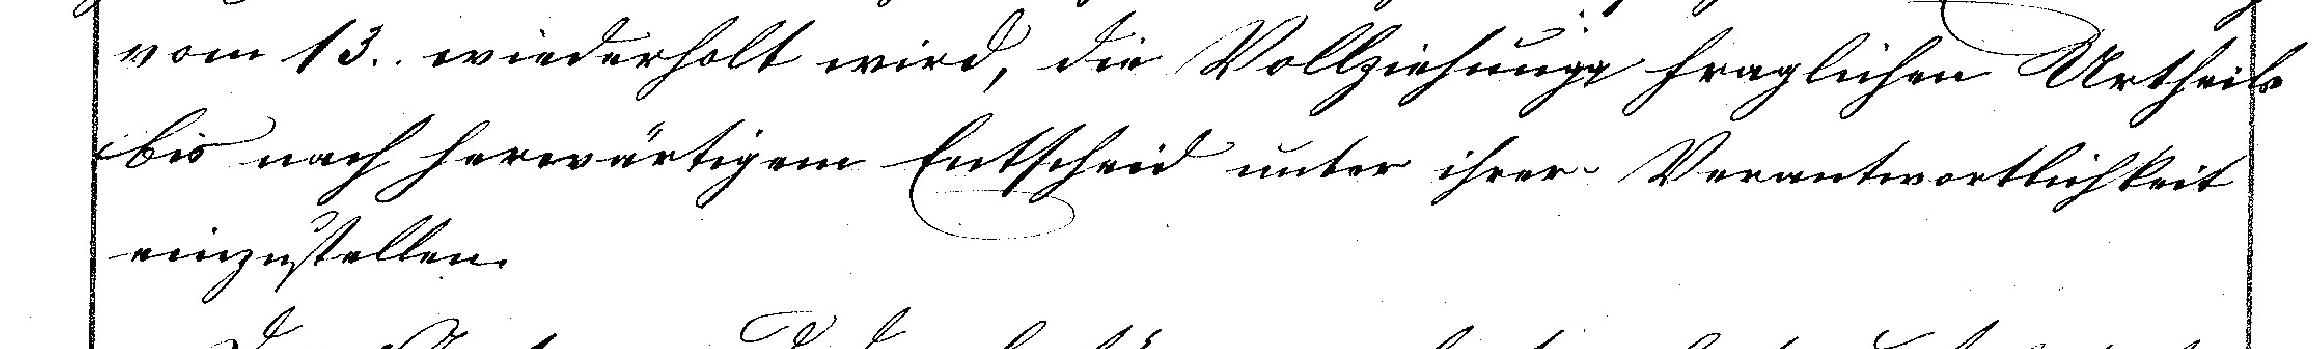 vom 13. wiederholt wird, die Vollziehung fraglichen Urtheils
bis nach herwärtigem Entscheid unter ihrer Verantwortlichkeit
einzustellen.